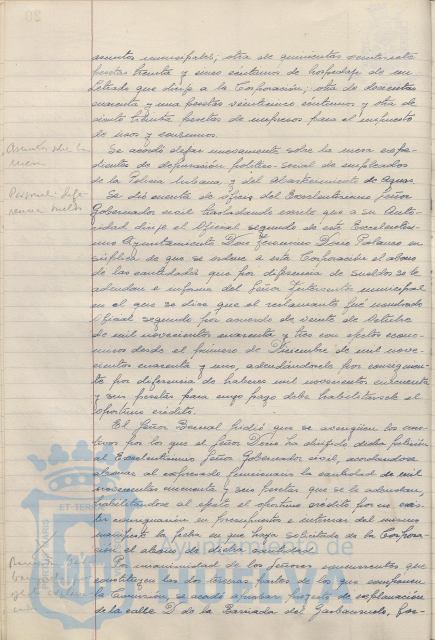 20
asuntos municipales; otra de quinientas veinte y siete
pesetas treinta y cinco céntimos de hospedaje de un
Letrado que dirije a la Corporación; otra de doscientas
cuarenta y una pesetas veinticinco céntimos y otra de
ciento treinta pesetas de impresos para el impuesto
de usos y consumos.
Asuntos sobre la
mesa
Se acordó dejar nuevamente sobre la mesa expe-
dientes de depuración político-social de empleados
de la Policía Urbana y del Abastecimiento de Aguas.
Personal: dife-
rencia sueldo
Se dió cuenta de oficio del Excelentísimo Señor
Gobernador civil trasladando escrito que a su Auto-
ridad dirije el Oficial segundo de este Excelentísi-
mo Ayuntamiento Don Don Polanco en
súplica de que se ordene a esta Corporación el abono
de las cantidades que por diferencia de sueldos se le
adeudan e informe del Señor Interventor municipal
en el que se dice que el reclamante fué nombrado
Oficial segundo por acuerdo de veinte de Octubre
de mil novecientos cuarenta y tres con efectos econó-
micos desde el primero de Diciembre de mil nove-
cientos cuarenta y uno, adeudándosele por consiguien-
te por diferencia de haberes mil novecientas cincuenta
y seis pesetas para cuyo pago debe habilitarse el
oportuno crédito.
El Señor Bernal pidió que se averigüen los mo-
tivos por los que el Señor ha dirijido dicha petición
al Excelentísimo Señor Gobernador civil, acordándose
abonar al expresado funcionario la cantidad de mil
novecientas cincuenta y seis pesetas que se le adeudan,
habilitándose al efecto el oportuno crédito por no exis-
tir consignación en presupuesto e interesar del mismo
manifieste la fecha en que haya solicitado de la Corpora-
ción el abono de dicha cantidad.
Por unanimidad de los Señores concurrentes, que
constituyen las dos terceras partes de los que componen
la Comisión, se acordó aprobar proyecto de explanación
de la calle D de la Barriada del Garbanzuelo, for-
ET TER
Ayuntamiento de